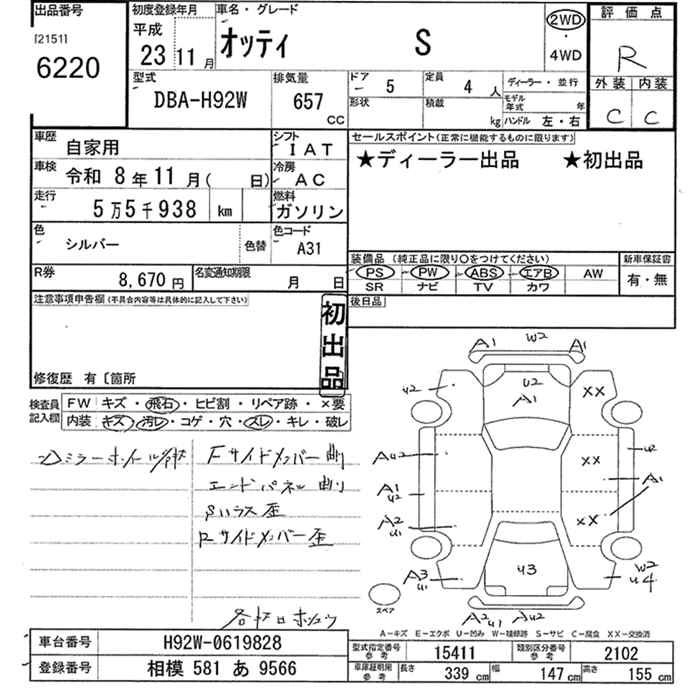 出品番号 初度登録年月 車名・グレード 評価点
I21511 平成 23 11月 オッティ S 2WD 4WD R
6220
型式 排気量 ドア 5 定員 4人 ディーラー・並行 外装 内装
DBA-H92W 657 CC 形状 積載 kg モデル年式 年 ハンドル 左・右 C C
車歴 自家用 シフト IAT セールスポイント(正常に機能するものに限ります)
車検 令和 8年 11月( 日) 冷房 AC ★ディーラー出品 ★初出品
走行 5万5千938 km 燃料 ガソリン
色 シルバー 色替 色コード A31
装備品 (純正品に限り○をつけてください) 新車保証書
PS PW ABS エアB AW 有・無
SR ナビ TV カワ
R券 8,670円 名変通知期限 月 日
後日品
注意事項申告欄(不具合内容等は具体的に記入して下さい)
初出品
修復歴 有〔箇所
検査員記入欄 FW キズ・飛石・ヒビ割・リペア跡・×要
内装 キズ・汚レ・コゲ・穴・スレ・キレ・破レ
Fサイドメンバー曲り
エンドパネル曲り
Rサイドメンバー歪
A1 W2 A1
U2 U2 A1 XX
AU2 XX U2
A1 U2 A1
A2 U1 XX
A3 U1 U3 W2 U4
スペア
A2 U1 AU2
A-キズ E-エクボ U-凹み W-補修跡 S-サビ C-腐食 XX-交換済
車台番号 H92W-0619828
登録番号 相模 581 あ 9566
型式指定番号 参考 15411 類別区分番号 参考 2102
車庫証明用 参考 長さ 339 cm 幅 147 cm 高さ 155 cm